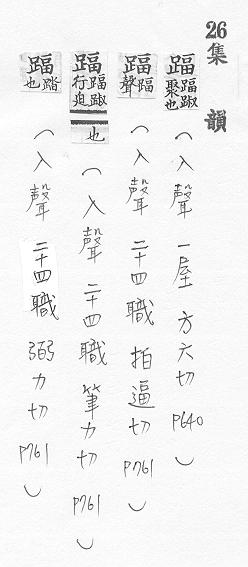 26集韻
踾 踾踧聚也（入聲 一屋 方六切 P640）
踾 踾聲（入聲 二十四職 拍逼切 P761）
踾 踾踧行迫也（入聲 二十四職 筆力切 P761）
踾 踏也（入聲 二十四職 弼力切 P761）